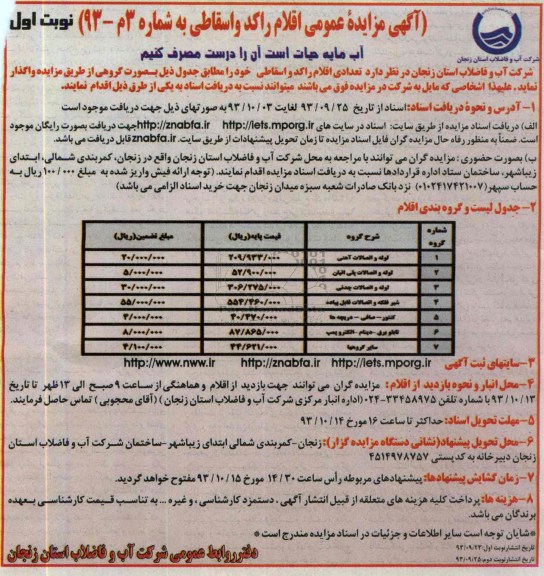 (آگهی مزایدهٔ عمومی اقلام راکد واسقاطی به شماره ۳م -۹۳) نوبت اول
شرکت آب و فاضلاب استان زنجان
آب مایه حیات است آن را درست مصرف کنیم
شرکت آب و فاضلاب استان زنجان در نظر دارد تعدادی اقلام راکد و اسقاطی خود را مطابق جدول ذیل بصورت گروهی از طریق مزایده واگذار
نماید. علیهذا اشخاصی که مایل به شرکت در مزایده فوق می باشند میتوانند نسبت به دریافت اسناد به یکی از طرق ذیل اقدام نمایند.
۱- آدرس و نحوهٔ دریافت اسناد: اسناد از تاریخ ۹۳/۰۹/۲۵ لغایت ۹۳/۱۰/۰۳ به صورتهای ذیل جهت دریافت موجود است
الف) دریافت اسناد مزایده از طریق سایت: اسناد در سایت های http://iets.mporg.ir http://znabfa.ir جهت دریافت بصورت رایگان موجود
است. ضمناً به منظور رفاه حال مزایده گران فایل اسناد مزایده تا زمان تحویل پیشنهادات از طریق سایت znabfa.ir قابل دریافت می باشد.
ب) بصورت حضوری: مزایده گران می توانند با مراجعه به محل شرکت آب و فاضلاب استان زنجان واقع در زنجان، کمربندی شمالی، ابتدای
زیباشهر، ساختمان ستاد اداره قراردادها نسبت به دریافت اسناد مزایده اقدام نمایند. (توجه ارائه فیش واریز شده به مبلغ ۱۰۰/۰۰۰ ریال به
حساب سپهر (۰۱۰۲۴۱۷۴۲۱۰۰۷) نزد بانک صادرات شعبه سبزه میدان زنجان جهت خرید اسناد الزامی می باشد)
۲- جدول لیست و گروه بندی اقلام
شماره گروه | شرح گروه | قیمت پایه(ریال) | مبلغ تضمین(ریال)
۱ | لوله و اتصالات آهنی | ۲۰۹/۹۳۳/۰۰۰ | ۲۰/۰۰۰/۰۰۰
۲ | لوله و اتصالات پلی اتیلن | ۵۲/۹۰۰/۰۰۰ | ۵/۰۰۰/۰۰۰
۳ | لوله و اتصالات چدنی | ۳۰۶/۲۷۵/۰۰۰ | ۳۰/۰۰۰/۰۰۰
۴ | شیر فلکه و اتصالات قابل پیاده | ۵۵۴/۴۶۰/۰۰۰ | ۵۵/۰۰۰/۰۰۰
۵ | کنتور - صافی - دریچه ها | ۴۰/۴۷۰/۰۰۰ | ۴/۰۰۰/۰۰۰
۶ | تابلو برق - دینام - الکتروپمپ | ۸۷/۸۶۵/۰۰۰ | ۸/۰۰۰/۰۰۰
۷ | سایر گروهها | ۴۴/۶۲۱/۰۰۰ | ۴/۱۰۰/۰۰۰
۳- سایتهای ثبت آگهی http://iets.mporg.ir http://znabfa.ir http://www.nww.ir
۴- محل انبار و نحوه بازدید از اقلام: مزایده گران می توانند جهت بازدید از اقلام و هماهنگی از ساعت ۹ صبح الی ۱۳ ظهر تا تاریخ
۹۳/۱۰/۱۳ با شماره تلفن ۳۳۴۵۸۹۷۵-۰۲۴ (اداره انبار مرکزی شرکت آب و فاضلاب استان زنجان) (آقای محجوبی) تماس حاصل فرمایند.
۵- مهلت تحویل اسناد: حداکثر تا ساعت ۱۶ مورخ ۹۳/۱۰/۱۴
۶- محل تحویل پیشنهاد(نشانی دستگاه مزایده گزار): زنجان-کمربندی شمالی ابتدای زیباشهر-ساختمان شرکت آب و فاضلاب استان
زنجان دبیرخانه به کدپستی ۴۵۱۴۹۷۸۷۵۷
۷- زمان گشایش پیشنهادها: پیشنهادهای مربوطه رأس ساعت ۱۴/۳۰ مورخ ۹۳/۱۰/۱۵ مفتوح خواهد گردید.
۸- هزینه ها: پرداخت کلیه هزینه های متعلقه از قبیل انتشار آگهی، دستمزد کارشناسی، و غیره ... به تناسب قیمت کارشناسی بعهده
برندگان می باشد.
*شایان توجه است سایر اطلاعات و جزئیات در اسناد مزایده مندرج است*
تاریخ انتشار نوبت اول: ۹۳/۰۹/۲۳
تاریخ انتشار نوبت دوم: ۹۳/۰۹/۲۵
دفتر روابط عمومی شرکت آب و فاضلاب استان زنجان